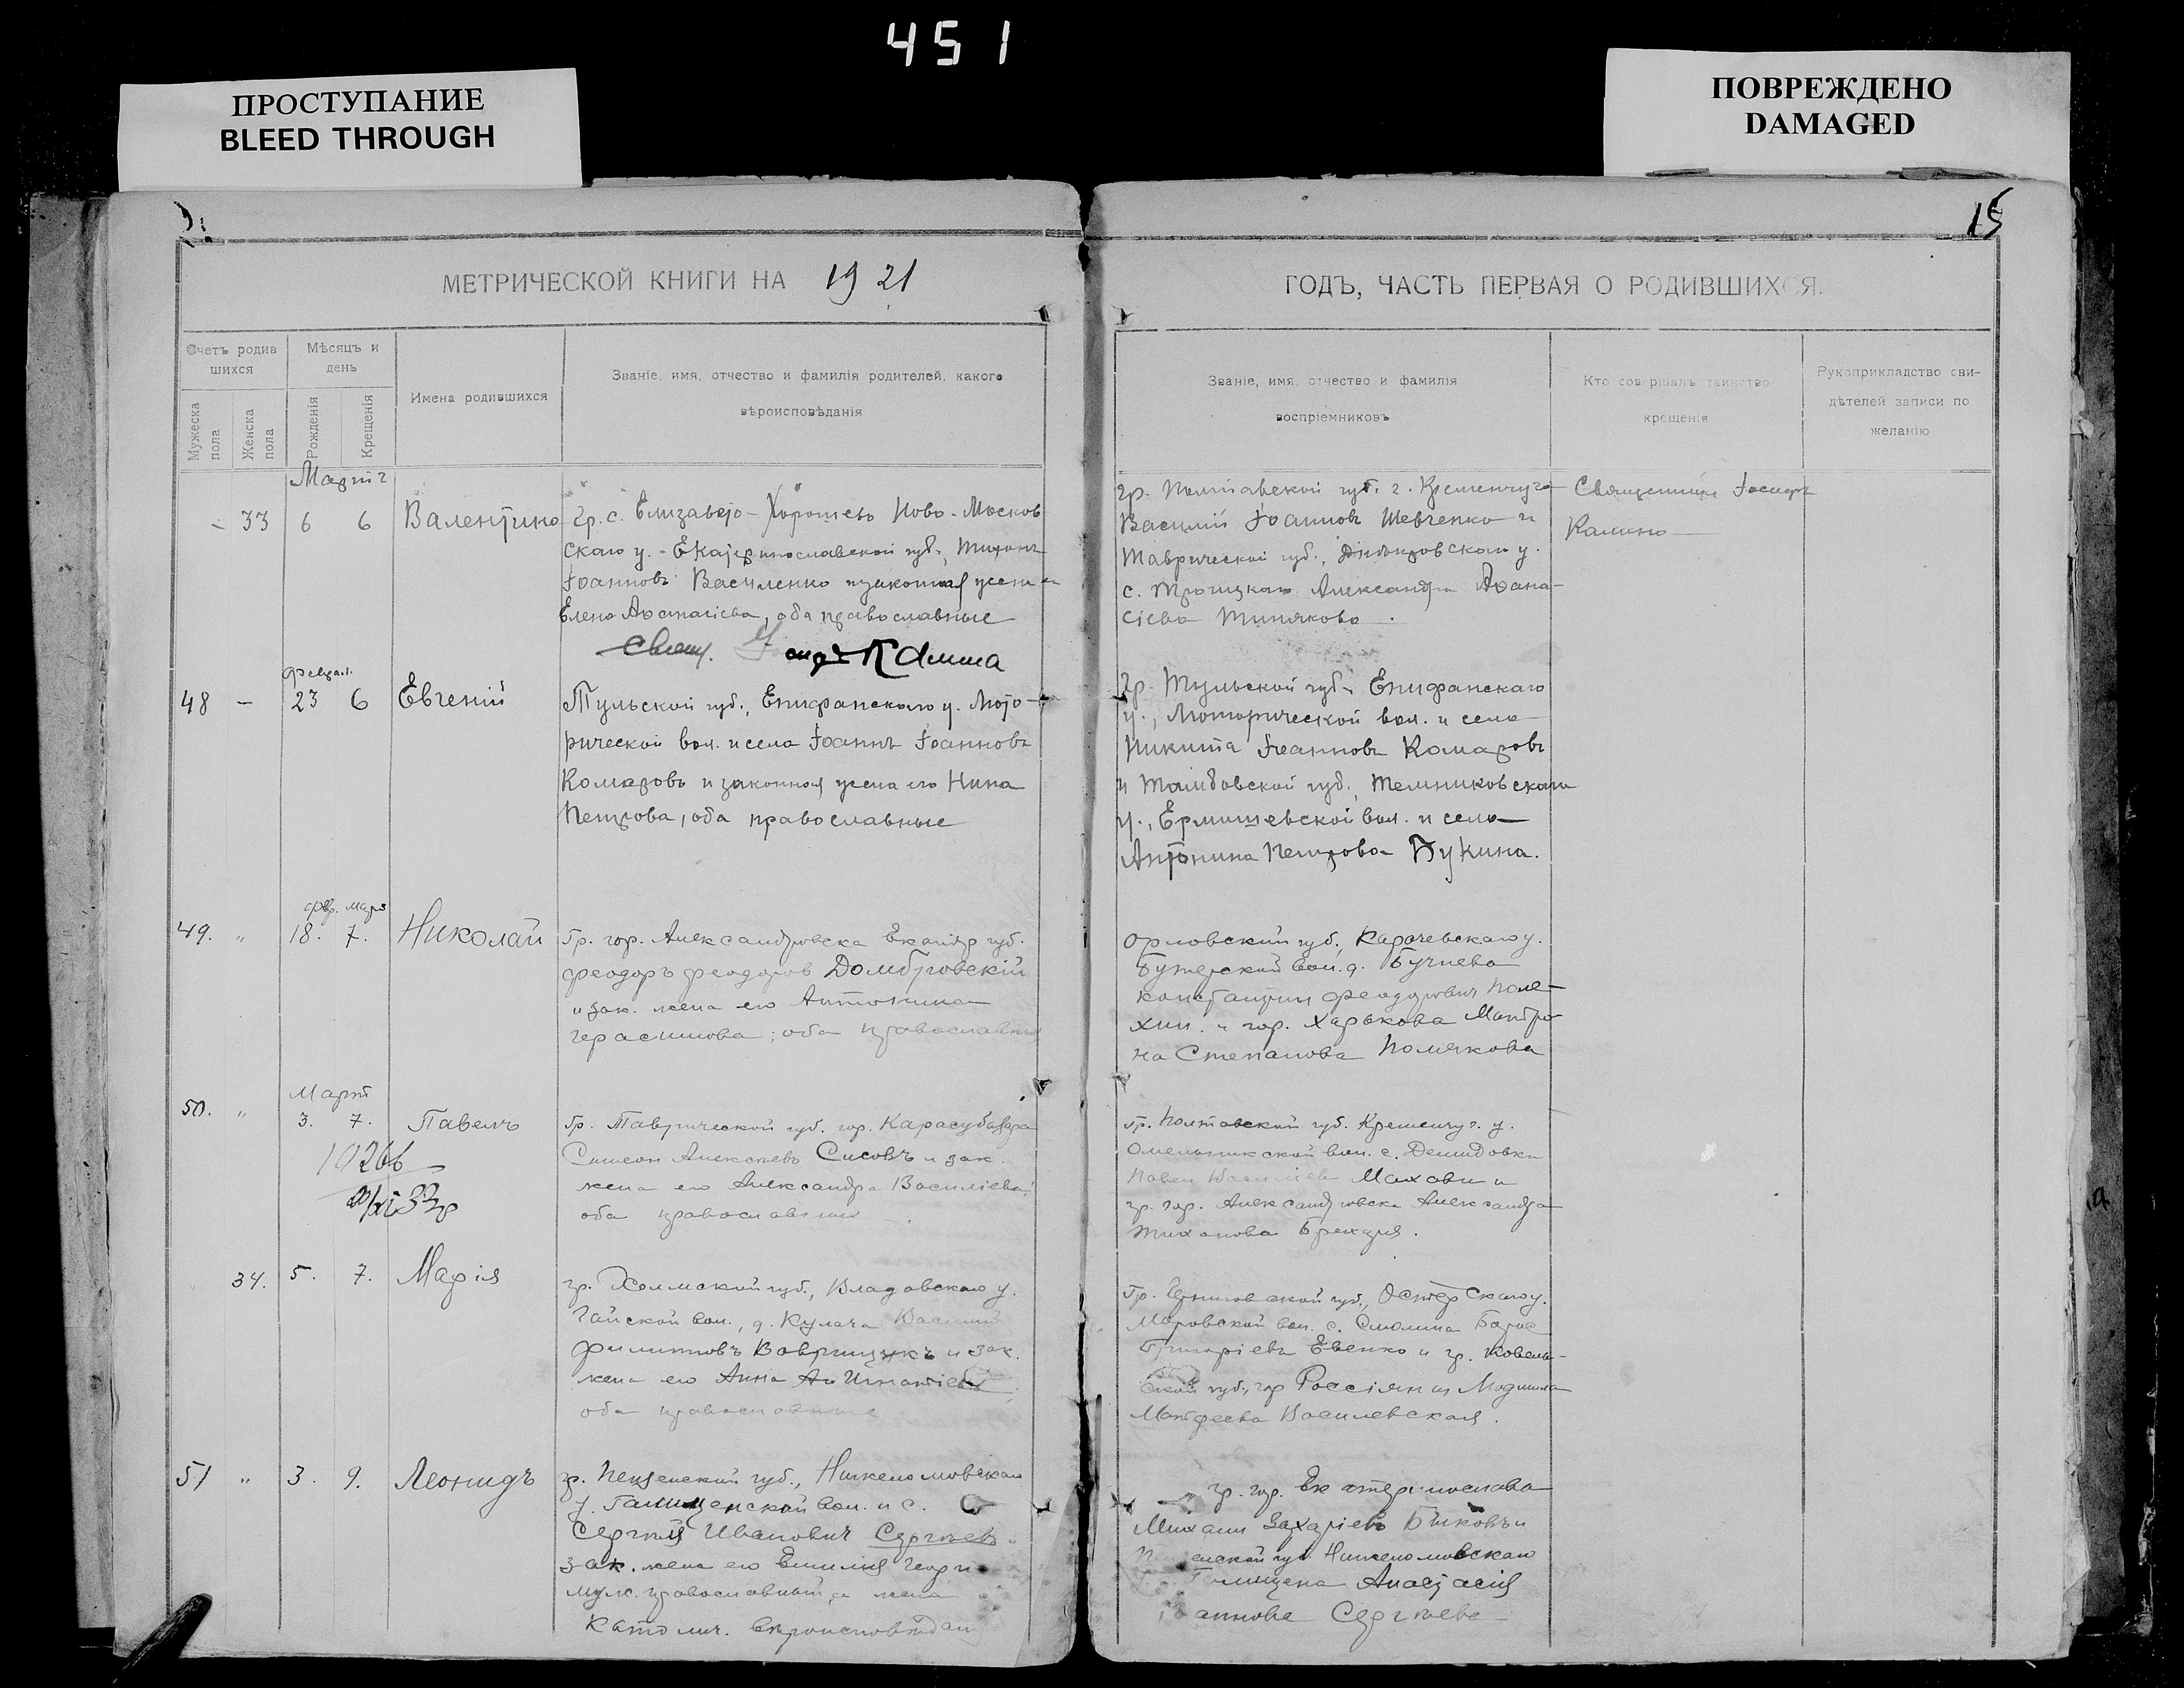 451
ПРОСТУПАНИЕ
BLEED THROUGH
ПОВРЕЖДЕНО
DAMAGED
15
МЕТРИЧЕСКОЙ КНИГИ НА 1921
ГОДЪ, ЧАСТЬ ПЕРВАЯ О РОДИВШИХСЯ.
Счетъ родив
шихся
Мужеска
пола
Женска
пола
Мѣсяцъ и
день
Рожденія
Крещенія
Имена родившихся
Званіе, имя, отчество и фамилія родителей, какого
вѣроисповѣданія
Званіе, имя, отчество и фамилія
воспріемниковъ
Кто совершалъ таинство
крещенія
Рукоприкладство сви-
дѣтелей записи по
желанію
Мартъ
- 33 6 6 Валентина
Гр. с. Елизавето-Хорошево Ново-Москов
скаго у. - Екатеринославской губ., Тихонъ
Іоанновъ Василенко и законная жена
Елена Аѳанасіева, оба православные
Свящ. Камина
гр. Полтавской губ. г. Кременчуга
Василій Іоанновъ Шевченко и
Таврической губ., Днѣпровскаго у.
с. Троицкаго Александра Аѳана-
сіева Минякова.
Священникъ Іосифъ
Камина
Феврал.
48 - 23 6 Евгеній
Тульской губ., Епифанскаго у. Мото-
рической вол. и села Іоаннъ Іоанновъ
Комаровъ и законная жена его Нина
Петрова, оба православные
Гр. Тульской губ. Епифанскаго
у., Моторической вол. и села
Никита Іоанновъ Комаровъ
и Тамбовской губ., Темниковскаго
у., Ермишевской вол. и села
Антонина Петрова Букина.
Фвр. Март
49. " 18. 7. Николай
Гр. гор. Александровска Екатер губ.
Феодоръ Феодоров Домбровскій
и зак. жена его Антонина
Герасимова; оба православные
Орловский губ., Карачевскаго у.
вол. д. Бучнева
Константин Феодорович Поле-
хин. и гор. Харькова Матро
на Степанова Полякова
Март
50. " 3. 7. Павелъ
Гр. Таврической губ. гор. Карасубазара
Симеон Алексѣевъ Сисовъ и зак.
жена его Александра Василіева;
оба православные
Гр. Полтавский губ. Кременчуг. у.
Омельникской вол. с. Демидовки
Павел Василіев Махови и
гр. гор. Александровска Александра
Тихонова
34. 5. 7. Марія
гр. Холмский губ., Владавскаго у.
вол., д. Кулача Василий
Филипповъ Ваврищукъ и зак.
жена его Анна Игнатіева;
оба православные
Гр. Черниговской губ., Остерскаго у.
вол. с. Смолина Борис
Григоріевъ Евенко и гр. Ковен-
ской губ., гор Россіяни
Матфеева Василевская.
51 " 3. 9. Леонидъ
гр. Пензенский губ., Нижеломовскаго
у. Голиценской вол. и с.
Сергѣй Иванович Сергѣевъ
зак. жена его Емилія
муж. православный, а жена
Католич. вѣроисповѣдан
гр. гор. Екатеринослава
Михаил Захаріевъ Быковъ и
Нижеломовскаго
Анастасія
Сергѣева